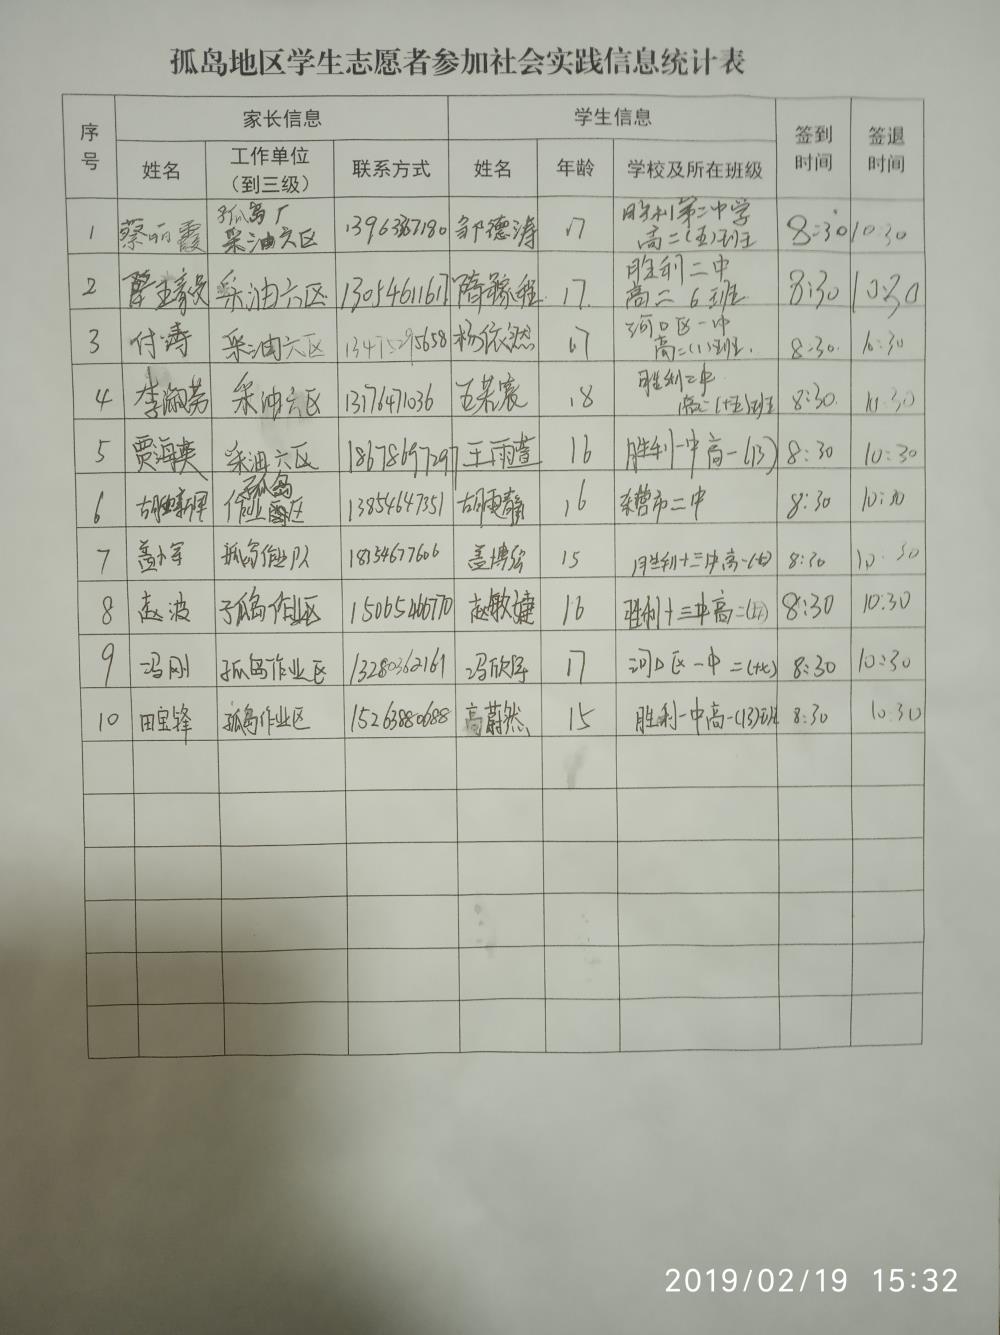 孤岛地区学生志愿者参加社会实践信息统计表
序号 家长信息 学生信息 签到时间 签退时间
姓名 工作单位（到三级） 联系方式 姓名 年龄 学校及所在班级
1 蔡丽霞 孤岛厂采油六区 邹德涛 17 胜利第二中学高二(五)班 8:30 10:30
2 采油六区 13054611617 17. 胜利二中高二6班 8:30 10:30
3 付涛 采油六区 13475295658 杨依然 17 河口区一中高二(1)班. 8:30. 10:30
4 李淑芳 采油六区 13176471036 王若寒 18 胜利二中高二(十五)班 8:30. 10:30
5 贾海英 采油六区 18678697297 王雨萱 16 胜利一中高一(13) 8:30 10:30
6 孤岛作业区 13854647351 16 枣庄市二中 8:30 10:30
7 盖小军 孤岛作业队 18154677606 盖博弘 15 胜利十三中高一(七) 8:30 10:30
8 赵波 孤岛作业区 15065466770 赵敏婕 16 胜利十三中高二(五) 8:30 10:30
9 冯刚 孤岛作业区 13280362161 冯欣宇 17 河口区一中二(十七) 8:30 10:30
10 田宝锋 孤岛作业区 15263880688 高蔚然 15 胜利一中高一(13)班 8:30 10:30
2019/02/19 15:32